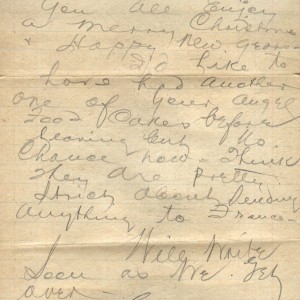 You all Enjoy
a Merry Christmas
& Happy New Year
I'd like to
have had another
one of your Angel
Food Cakes before
leaving but no
Chance now - Think
They are pretty
strict about sending
anything to France -
Will write
Soon as We get
over -